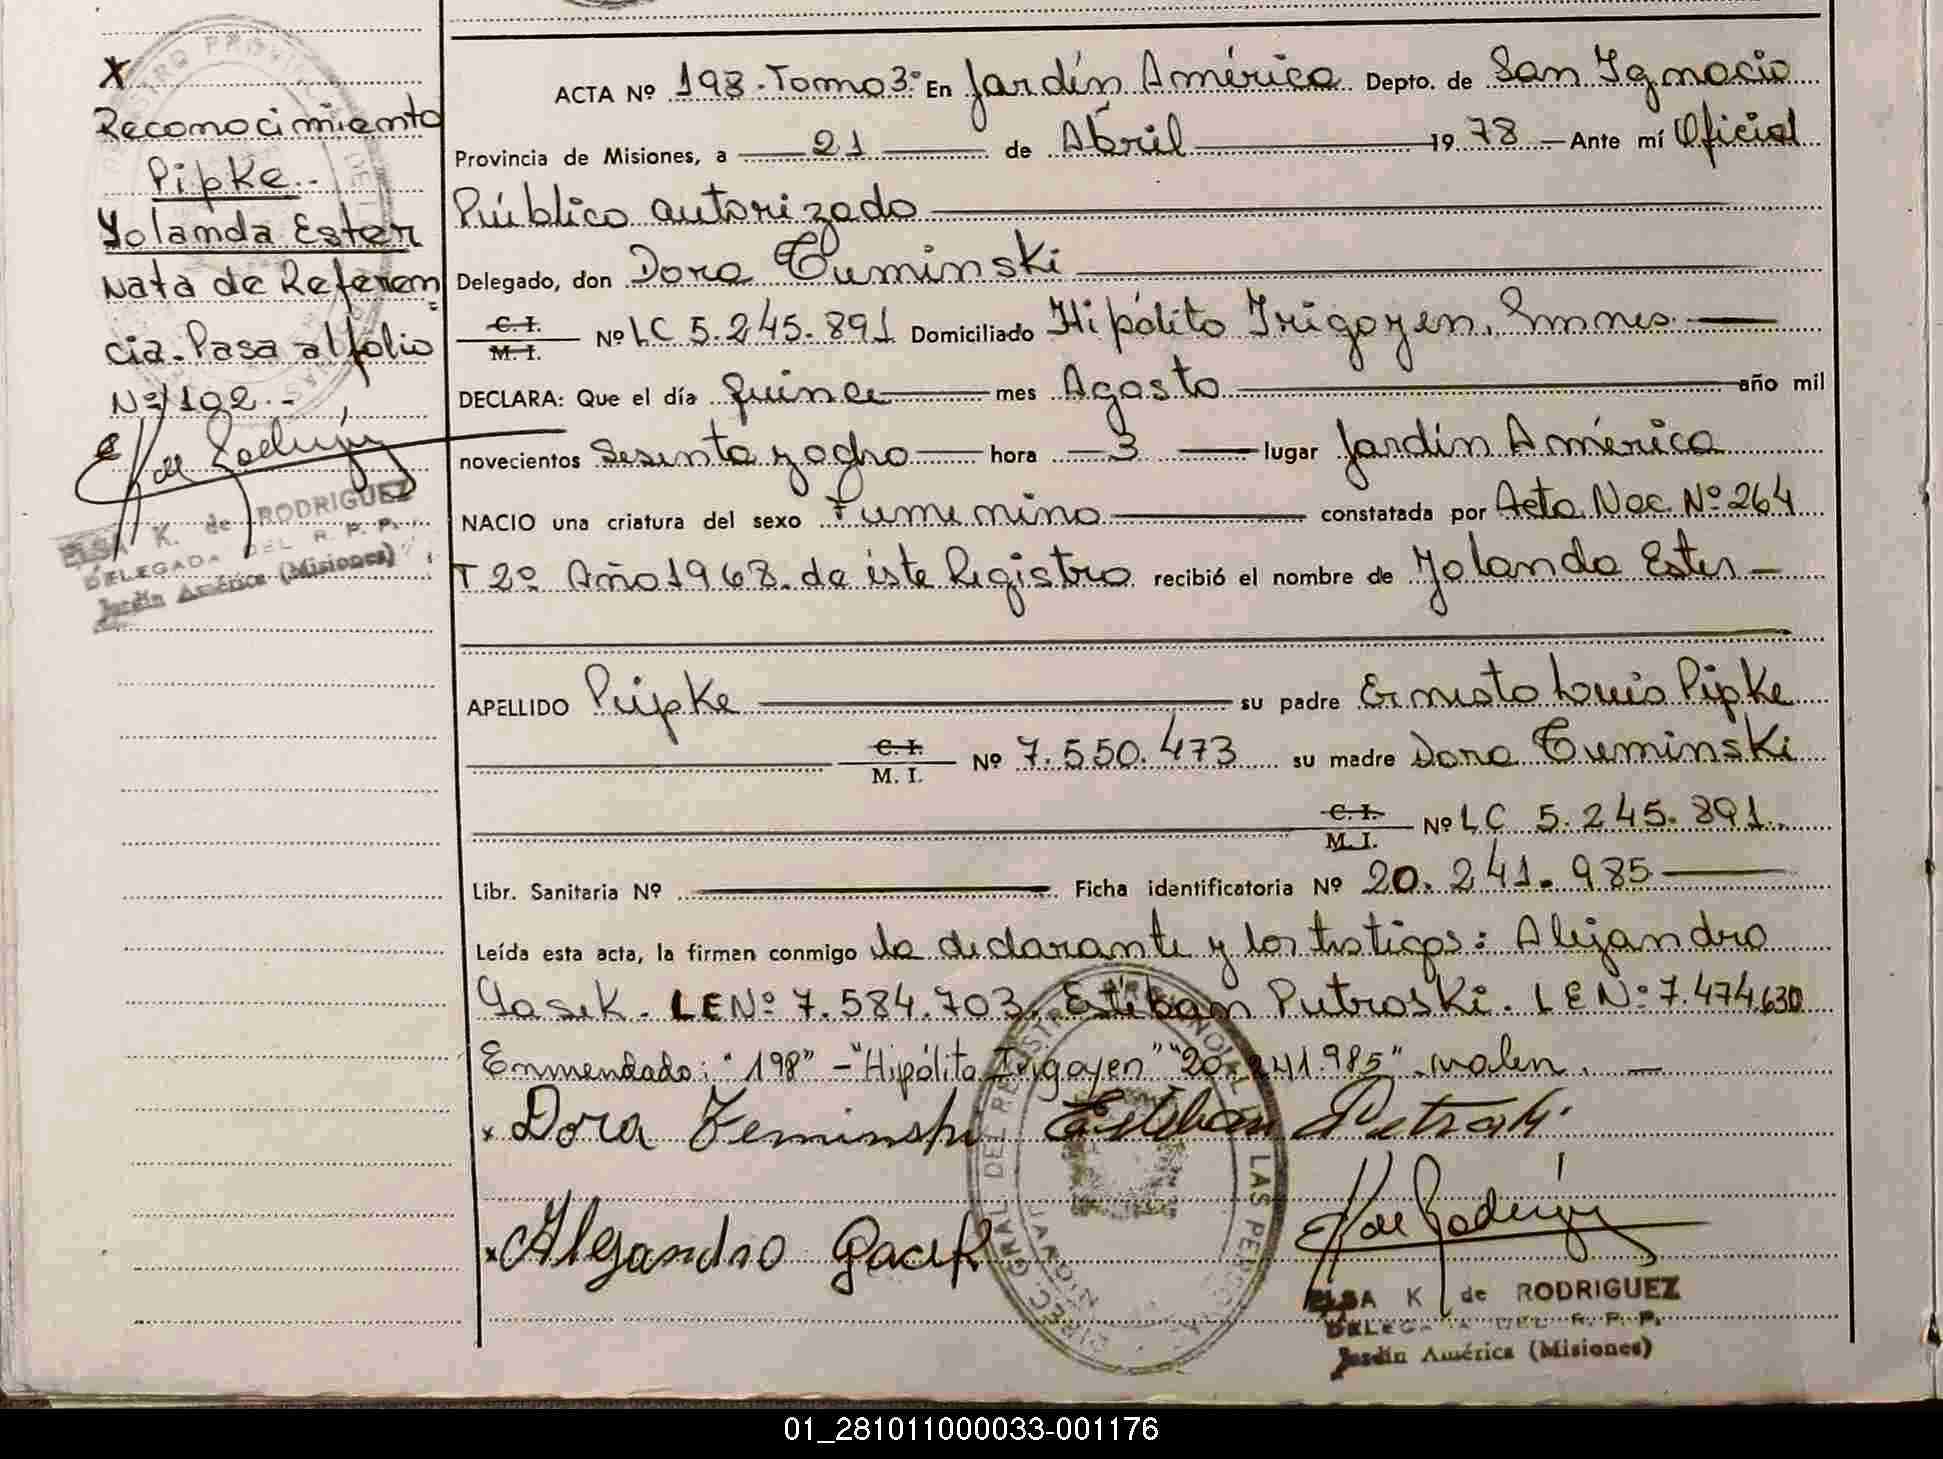 X
Reconocimiento
Pipke.-
Yolanda Ester
Nota de Referen
cia. Pasa al folio
Nº 102.-
ELSA K. de RODRIGUEZ
DELEGADA DEL R. P. P.
Jardín América (Misiones)
ACTA Nº 198. Tomo 3º En Jardín América Depto. de San Ignacio
Provincia de Misiones, a 21 de Abril 19 78 Ante mí Oficial
Público autorizado
Delegado, don Dora Tuminski
C. I.
M. I. Nº LC 5.245.891 Domiciliado Hipólito Irigoyen, Mnes.
DECLARA: Que el día quince mes Agosto año mil
novecientos sesenta y ocho hora 3 lugar Jardín América
NACIO una criatura del sexo Femenino constatada por Acta Nac. Nº 264
T 2º Año 1968. de éste Registro recibió el nombre de Yolanda Ester
APELLIDO Pipke su padre Ernesto Luis Pipke
C. I.
M. I. Nº 7.550.473 su madre Dora Tuminski
C. I.
M. I. Nº LC 5.245.891.
Libr. Sanitaria Nº Ficha identificatoria Nº 20.241.985
Leída esta acta, la firman conmigo la declarante y los testigos: Alejandro
Gasek. LE Nº 7.584.703. Esteban Petroski. LE Nº 7.474.630
Enmendado: "198" - "Hipólito Irigoyen" "20.241.985" valen.
x Dora Teminski Esteban Petroski
x Alejandro Gacek
ELSA K. de RODRIGUEZ
DELEGADA DEL R. P. P.
Jardín América (Misiones)
01_281011000033-001176